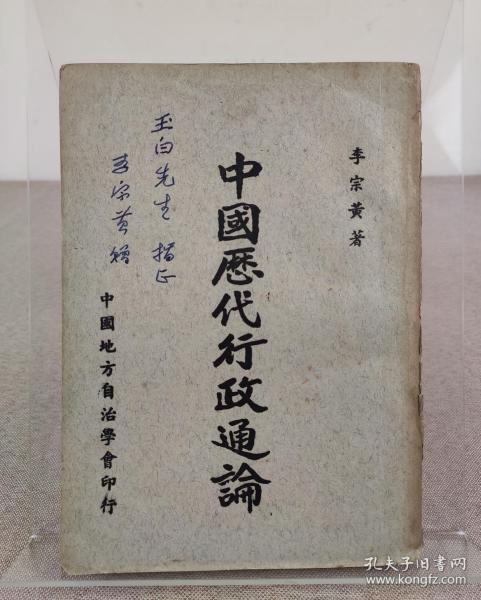 李宗黃著
中國歷代行政通論
玉白先生 指正
李宗黃贈
中國地方自治學會印行
孔夫子旧书网
www.kongfz.com